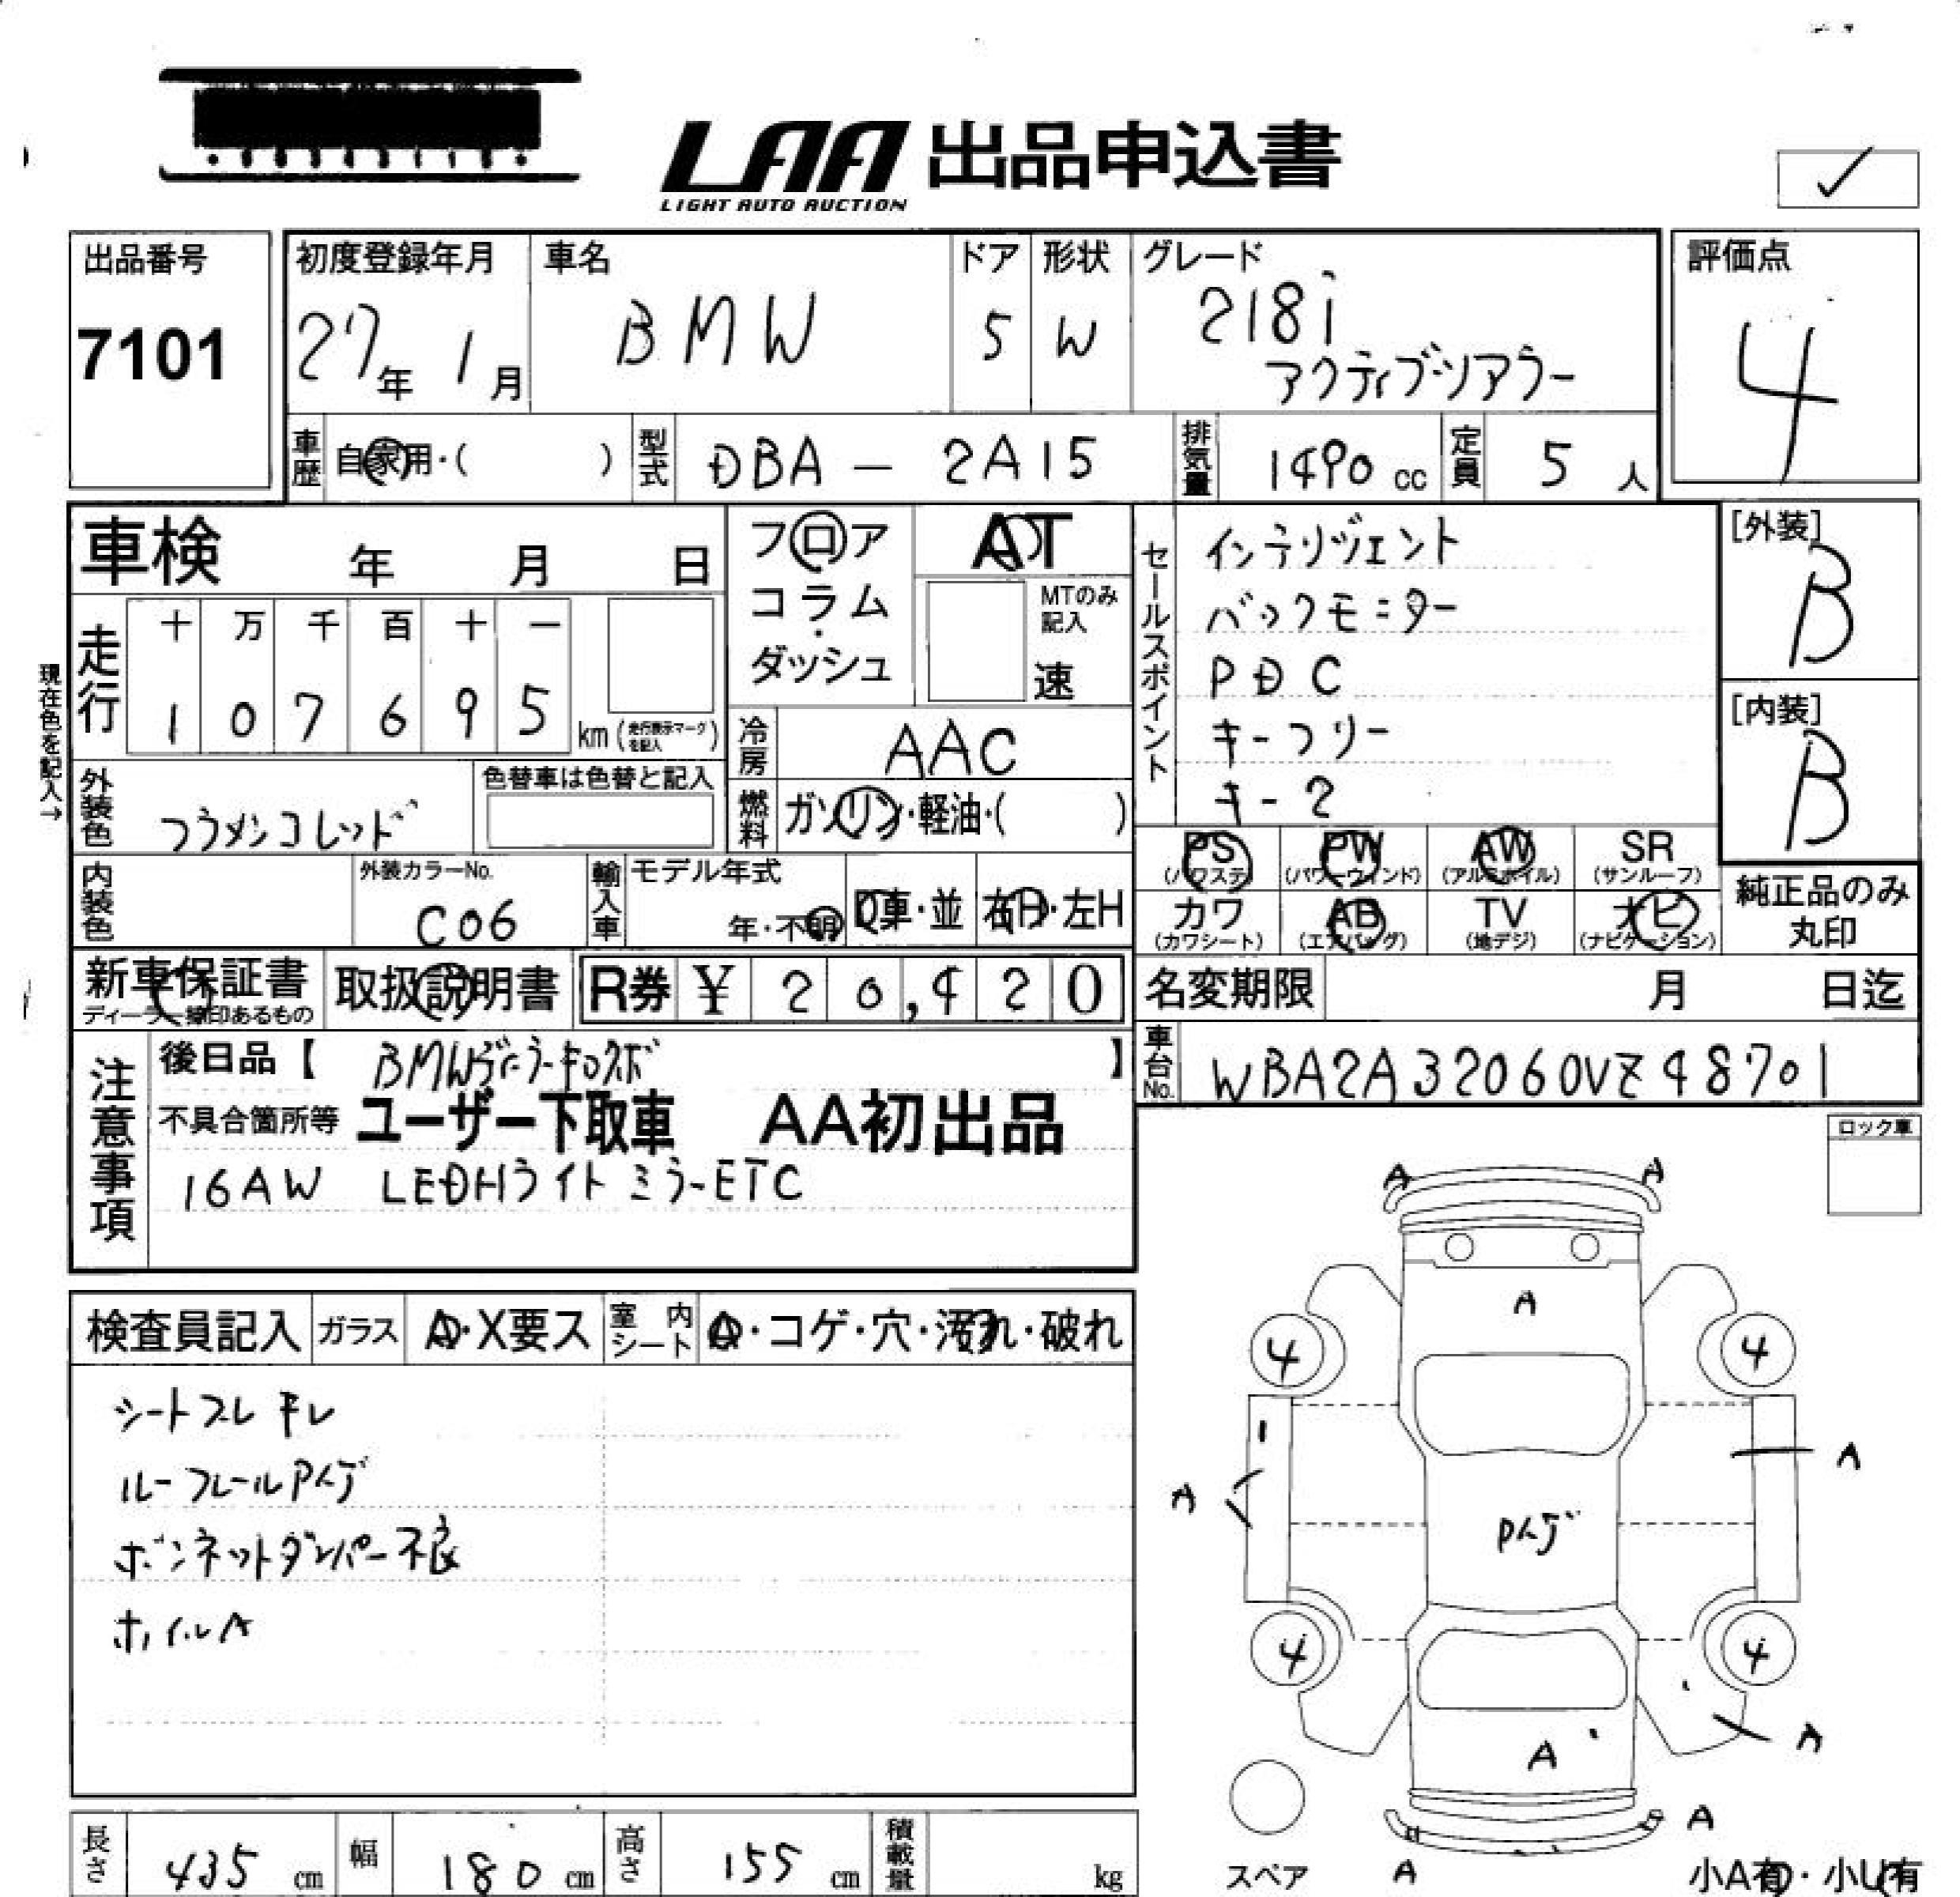 LAA 出品申込書
LIGHT AUTO AUCTION
出品番号
7101
初度登録年月
27年 1月
車名
BMW
ドア
5
形状
W
グレード
218i
アクティブツアラー
評価点
4
車歴 自家用・( )
型式 DBA - 2A15
排気量 1490 cc
定員 5 人
車検 年 月 日
フロア
コラム
・
ダッシュ
AT
MTのみ
記入
速
走行
十 万 千 百 十 一
1 0 7 6 9 5
km (走行表示マークを記入)
現在色を記入→
冷房 AAC
燃料 ガソリン・軽油・( )
外装色 フラメンコレッド
色替車は色替と記入
内装色
外装カラーNo.
C06
輸入車
モデル年式
年・不明
D車・並
右H・左H
セールスポイント
インテリジェント
バックモニター
PDC
キーフリー
キー2
[外装]
B
[内装]
B
PS
(パワステ)
PW
(パワーウィンド)
AW
(アルミホイル)
SR
(サンルーフ)
カワ
(カワシート)
AB
(エアバッグ)
TV
(地デジ)
ナビ
(ナビゲーション)
純正品のみ
丸印
新車保証書
ディーラー捺印あるもの
取扱説明書
R券 ¥ 20,420
名変期限 月 日迄
車台No. WBA2A32060VZ48701
注意事項
後日品【 BMW 】
不具合箇所等 ユーザー下取車 AA初出品
16AW LEDHライト ミラーETC
ロック車
検査員記入 ガラス A・X要ス
室内シート A・コゲ・穴・汚れ・破れ
シートスレ キレ
ルーフレールPハゲ
ボンネットダンパー不良
ホイルA
A A
A
4 4
A A
Pハゲ
4 4
A A
A
A
スペア
小A有・小U有
長さ 435 cm
幅 180 cm
高さ 155 cm
積載量 kg